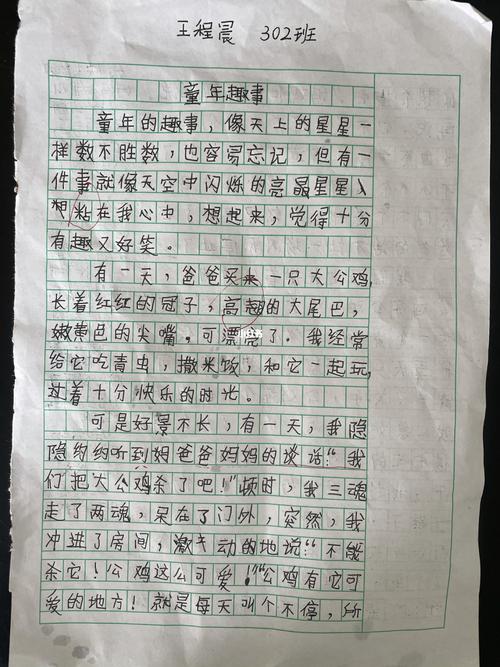 王程晨 302班
童年趣事
童年的趣事，像天上的星星一
样数不胜数，也容易忘记，但有一
件事就像天空中闪烁的亮晶星星入
粘在我心中，想起来，觉得十分
有趣又好笑。
有一天，爸爸买来一只大公鸡，
长着红红的冠子，高翘的大尾巴，
嫩黄巴的尖嘴。可漂亮了。我经常
给它吃青虫，撒米饭，和它一起玩，
过着十分快乐的时光。
可是好景不长，有一天，我隐
隐约约听到姆爸爸妈妈的谈话：“我
们把大公鸡杀了吧！”顿时，我三魂
走了两魂，呆在了门外，突然，我
冲进了房间，激动的地说：“不能
杀它！公鸡这么可爱！”“公鸡有它可
爱的地方！就是每天叫个不停，所